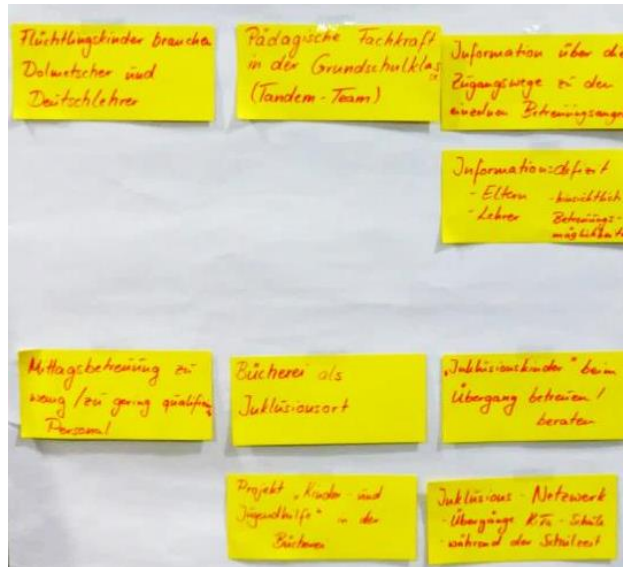 Flüchtlingskinder brauchen
Dolmetscher und
Deutschlehrer
Pädagische Fachkraft
in der Grundschulklas
(Tandem-Team)
Information über die
Zugangswege zu den
einzelnen Betreuungsange
Informationsdefizit
- Eltern - hinsichtlich
- Lehrer Betreuungs-
möglichkeite
Mittagsbetreuung zu
wenig / zu gering qualifiz
Personal
Bücherei als
Inklusionsort
"Inklusionskinder" beim
Übergang betreuen /
beraten
Projekt "Kinder- und
Jugendhilfe" in der
Bücherei
Inklusions-Netzwerk
- Übergänge KiTa - Schule
- während der Schulzeit